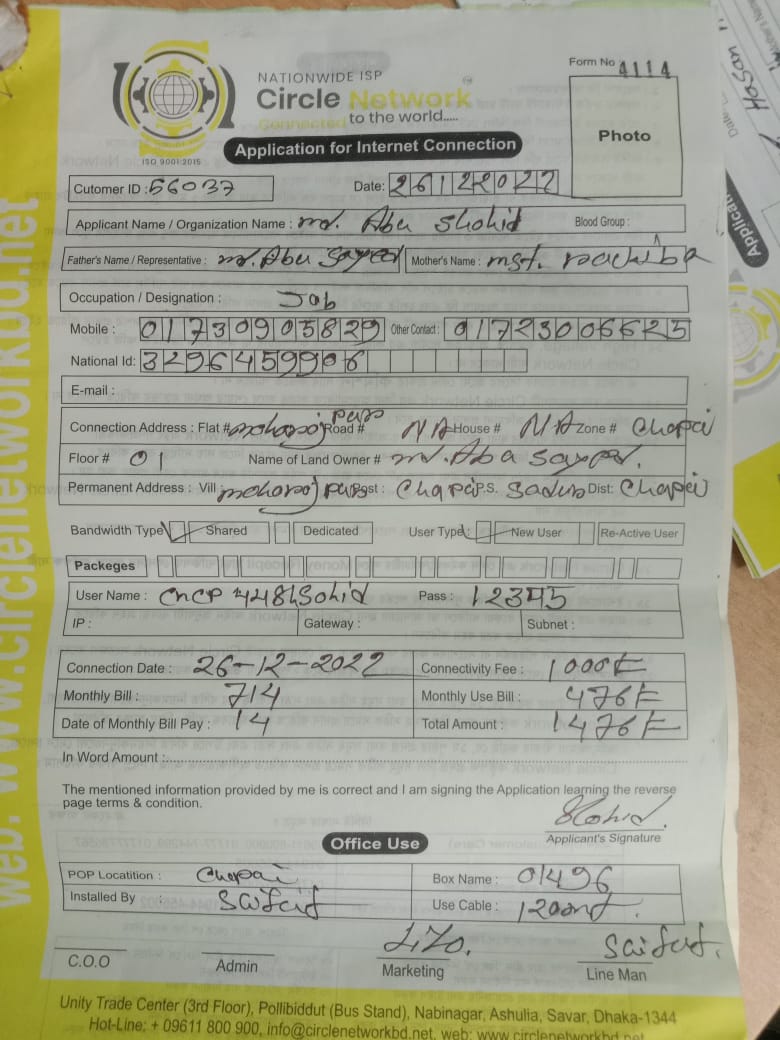 NATIONWIDE ISP
Circle Network
Connected to the world.....
ISO 9001:2015
Form No 4114
Photo
Application for Internet Connection
Cutomer ID : 56037 Date: 26122022
Applicant Name / Organization Name : md. Abu Shohid Blood Group :
Father's Name / Representative : md. Abu Sayed Mother's Name : mst. rachiba
Occupation / Designation : Job
Mobile : 01730905829 Other Contact : 01723006625
National Id: 3296459906
E-mail :
Connection Address : Flat # mohoraj para Road # N/A House # N/A Zone # Chapai
Floor # 01 Name of Land Owner # md. Abu Sayed.
Permanent Address : Vill mohoraj para Post : Chapai P.S. Sadur Dist: Chapai
Bandwidth Type : Shared Dedicated User Type : New User Re-Active User
Packeges
User Name : Pass : 12345
IP : Gateway : Subnet :
Connection Date : 26-12-2022 Connectivity Fee : 1000/=
Monthly Bill : 714 Monthly Use Bill : 476/=
Date of Monthly Bill Pay : 14 Total Amount : 1476/=
In Word Amount :
The mentioned information provided by me is correct and I am signing the Application learning the reverse
page terms & condition.
Shohid.
Applicant's Signature
Office Use
POP Locatition : Chapai Box Name : 01496
Installed By : Saifur Use Cable : 120
C.O.O Admin Marketing Saifur. Line Man
Unity Trade Center (3rd Floor), Pollibiddut (Bus Stand), Nabinagar, Ashulia, Savar, Dhaka-1344
Hot-Line: + 09611 800 900, info@circlenetworkbd.net, web: www.circlenetworkbd.net
web: www.circlenetworkbd.net
Hasan
Applicati